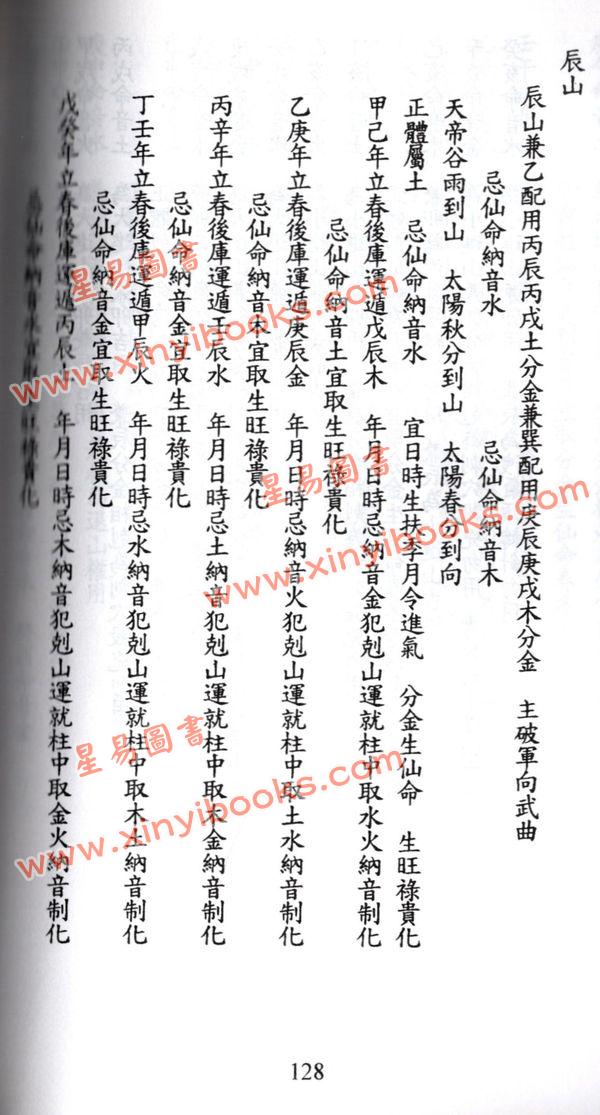 辰山
辰山兼乙配用丙辰丙戌土分金兼巽配用庚辰庚戌木分金　主破軍向武曲
忌仙命納音水　忌仙命納音木
天帝谷雨到山　太陽秋分到山　太陽春分到向
正體屬土　忌仙命納音水　宜日時生扶季月令進氣　分金生仙命　生旺祿貴化
甲己年立春後庫運遁戊辰木　年月日時忌納音金犯剋山運就柱中取水火納音制化
忌仙命納音土宜取生旺祿貴化
乙庚年立春後庫運遁庚辰金　年月日時忌納音火犯剋山運就柱中取土水納音制化
忌仙命納音木宜取生旺祿貴化
丙辛年立春後庫運遁壬辰水　年月日時忌土納音犯剋山運就柱中取木金納音制化
忌仙命納音金宜取生旺祿貴化
丁壬年立春後庫運遁甲辰火　年月日時忌水納音犯剋山運就柱中取木土納音制化
忌仙命納音金宜取生旺祿貴化
戊癸年立春後庫運遁丙辰　年月日時忌木納音犯剋山運就柱中取金火納音制化
忌仙命納音水宜取生旺祿貴化
128
星易圖書
www.xinyibooks.com
星易圖書
www.xinyibooks.com
星易圖書
www.xinyibooks.com